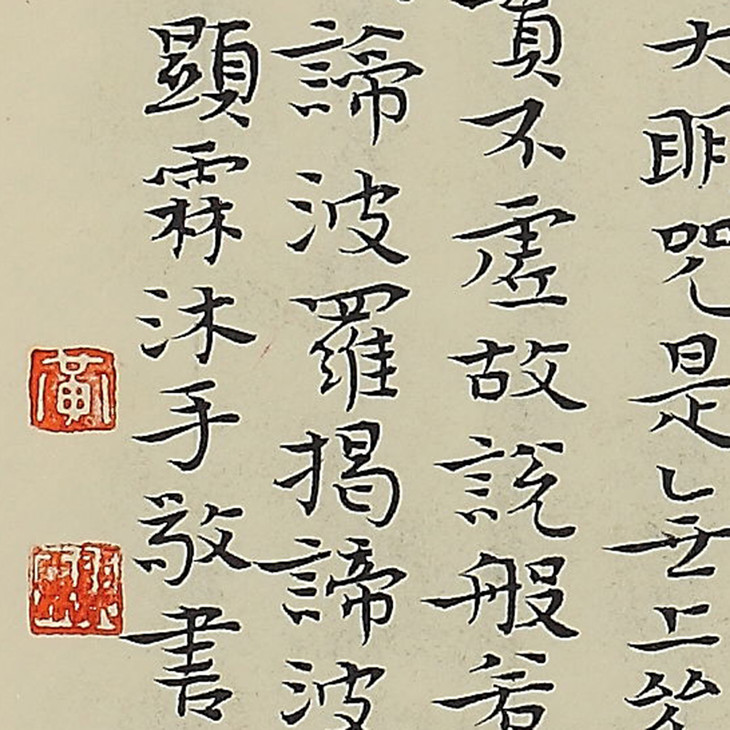 大眀咒是无上
實不虛故說般若
諦波羅揭諦波
顯霖沐手敬書
黃